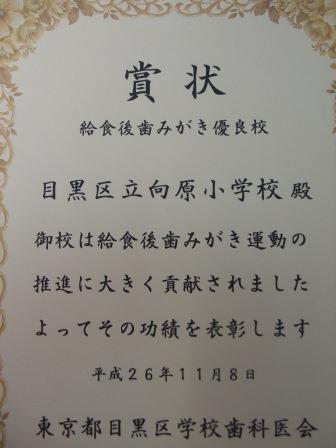 賞状
給食後歯みがき優良校
目黒区立向原小学校 殿
御校は給食後歯みがき運動の
推進に大きく貢献されました
よってその功績を表彰します
平成26年11月8日
東京都目黒区学校歯科医会